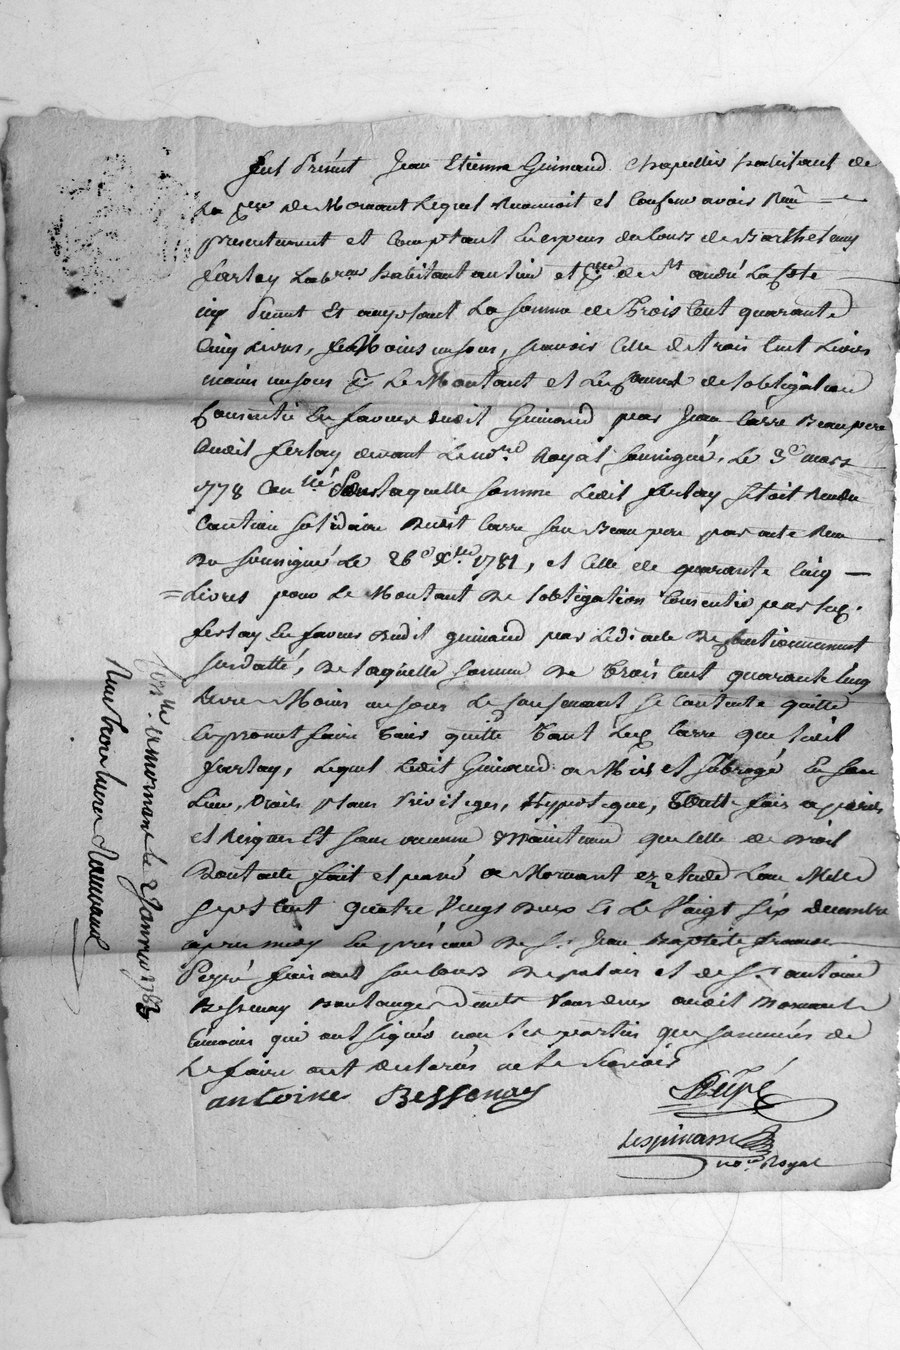 fut Présent Jean Etienne Guinand Chapellier habitant de
la psse de Mornant Lequel Reconnoit et Confesse avoir Reçu
presentement et Comptant En espèces du Cours de Barthelemy
ferlay Labreur habitant au lieu et psse de St andré La Côte
icy Present Et acceptant La Somme de Trois Cent quarante
Cinq Livres, Moins un sous, sçavoir Celle de trois Cent Livres
moins un sous pr Le Montant et de l'obligation
Consentie En faveur dudit Guinand par Jean Carre Beaupere
dudit ferlay devant Le nore Royal soussigné, Le 3e mars
1778 Conllé Pour laquelle somme Ledit ferlay s'etoit Rendu
Caution solidaire Dudit Carre son Beau pere par acte Reçu
Du soussigné Le 26e Xbre 1781, et Celle de quarante Cinq
= Livres pour Le Montant De l'obligation Consentie par led.
ferlay En faveur Dudit guinand par Ledt acte De Cautionnement
susdatté, De laquelle somme De Trois Cent quarante Cinq
Livre Moins un sous Le se Contente quitte
et promet faire tenir quitte tant Led. Carre que Ledit
ferlay, Lequel Ledit Guinand a Mis et subrogé En son
Lieu, Droits, place Privileges, Hypoteque, Toutte fois a perils
et Risques Et sans aucune Maintenue que Celle de Droit
Dont acte fait et passé a Mornant ez etude L'an Mille
Sept Cent quatre Vingt Deux Et Le Vingt six Decembre
apres midy En présence De Sr. Jean Baptiste
Peyré faisant son Cours De palais et de Sr. antoine
Bessenay Boulanger Demt tous deux audit Mornant
temoins qui ont signés non les parties que sommées de
Le faire ont declarés ne le sçavoir
antoine Bessenay
Peyré
Lespinasse
nore Royal
Conlle a mornant le 2 Janvier 1783